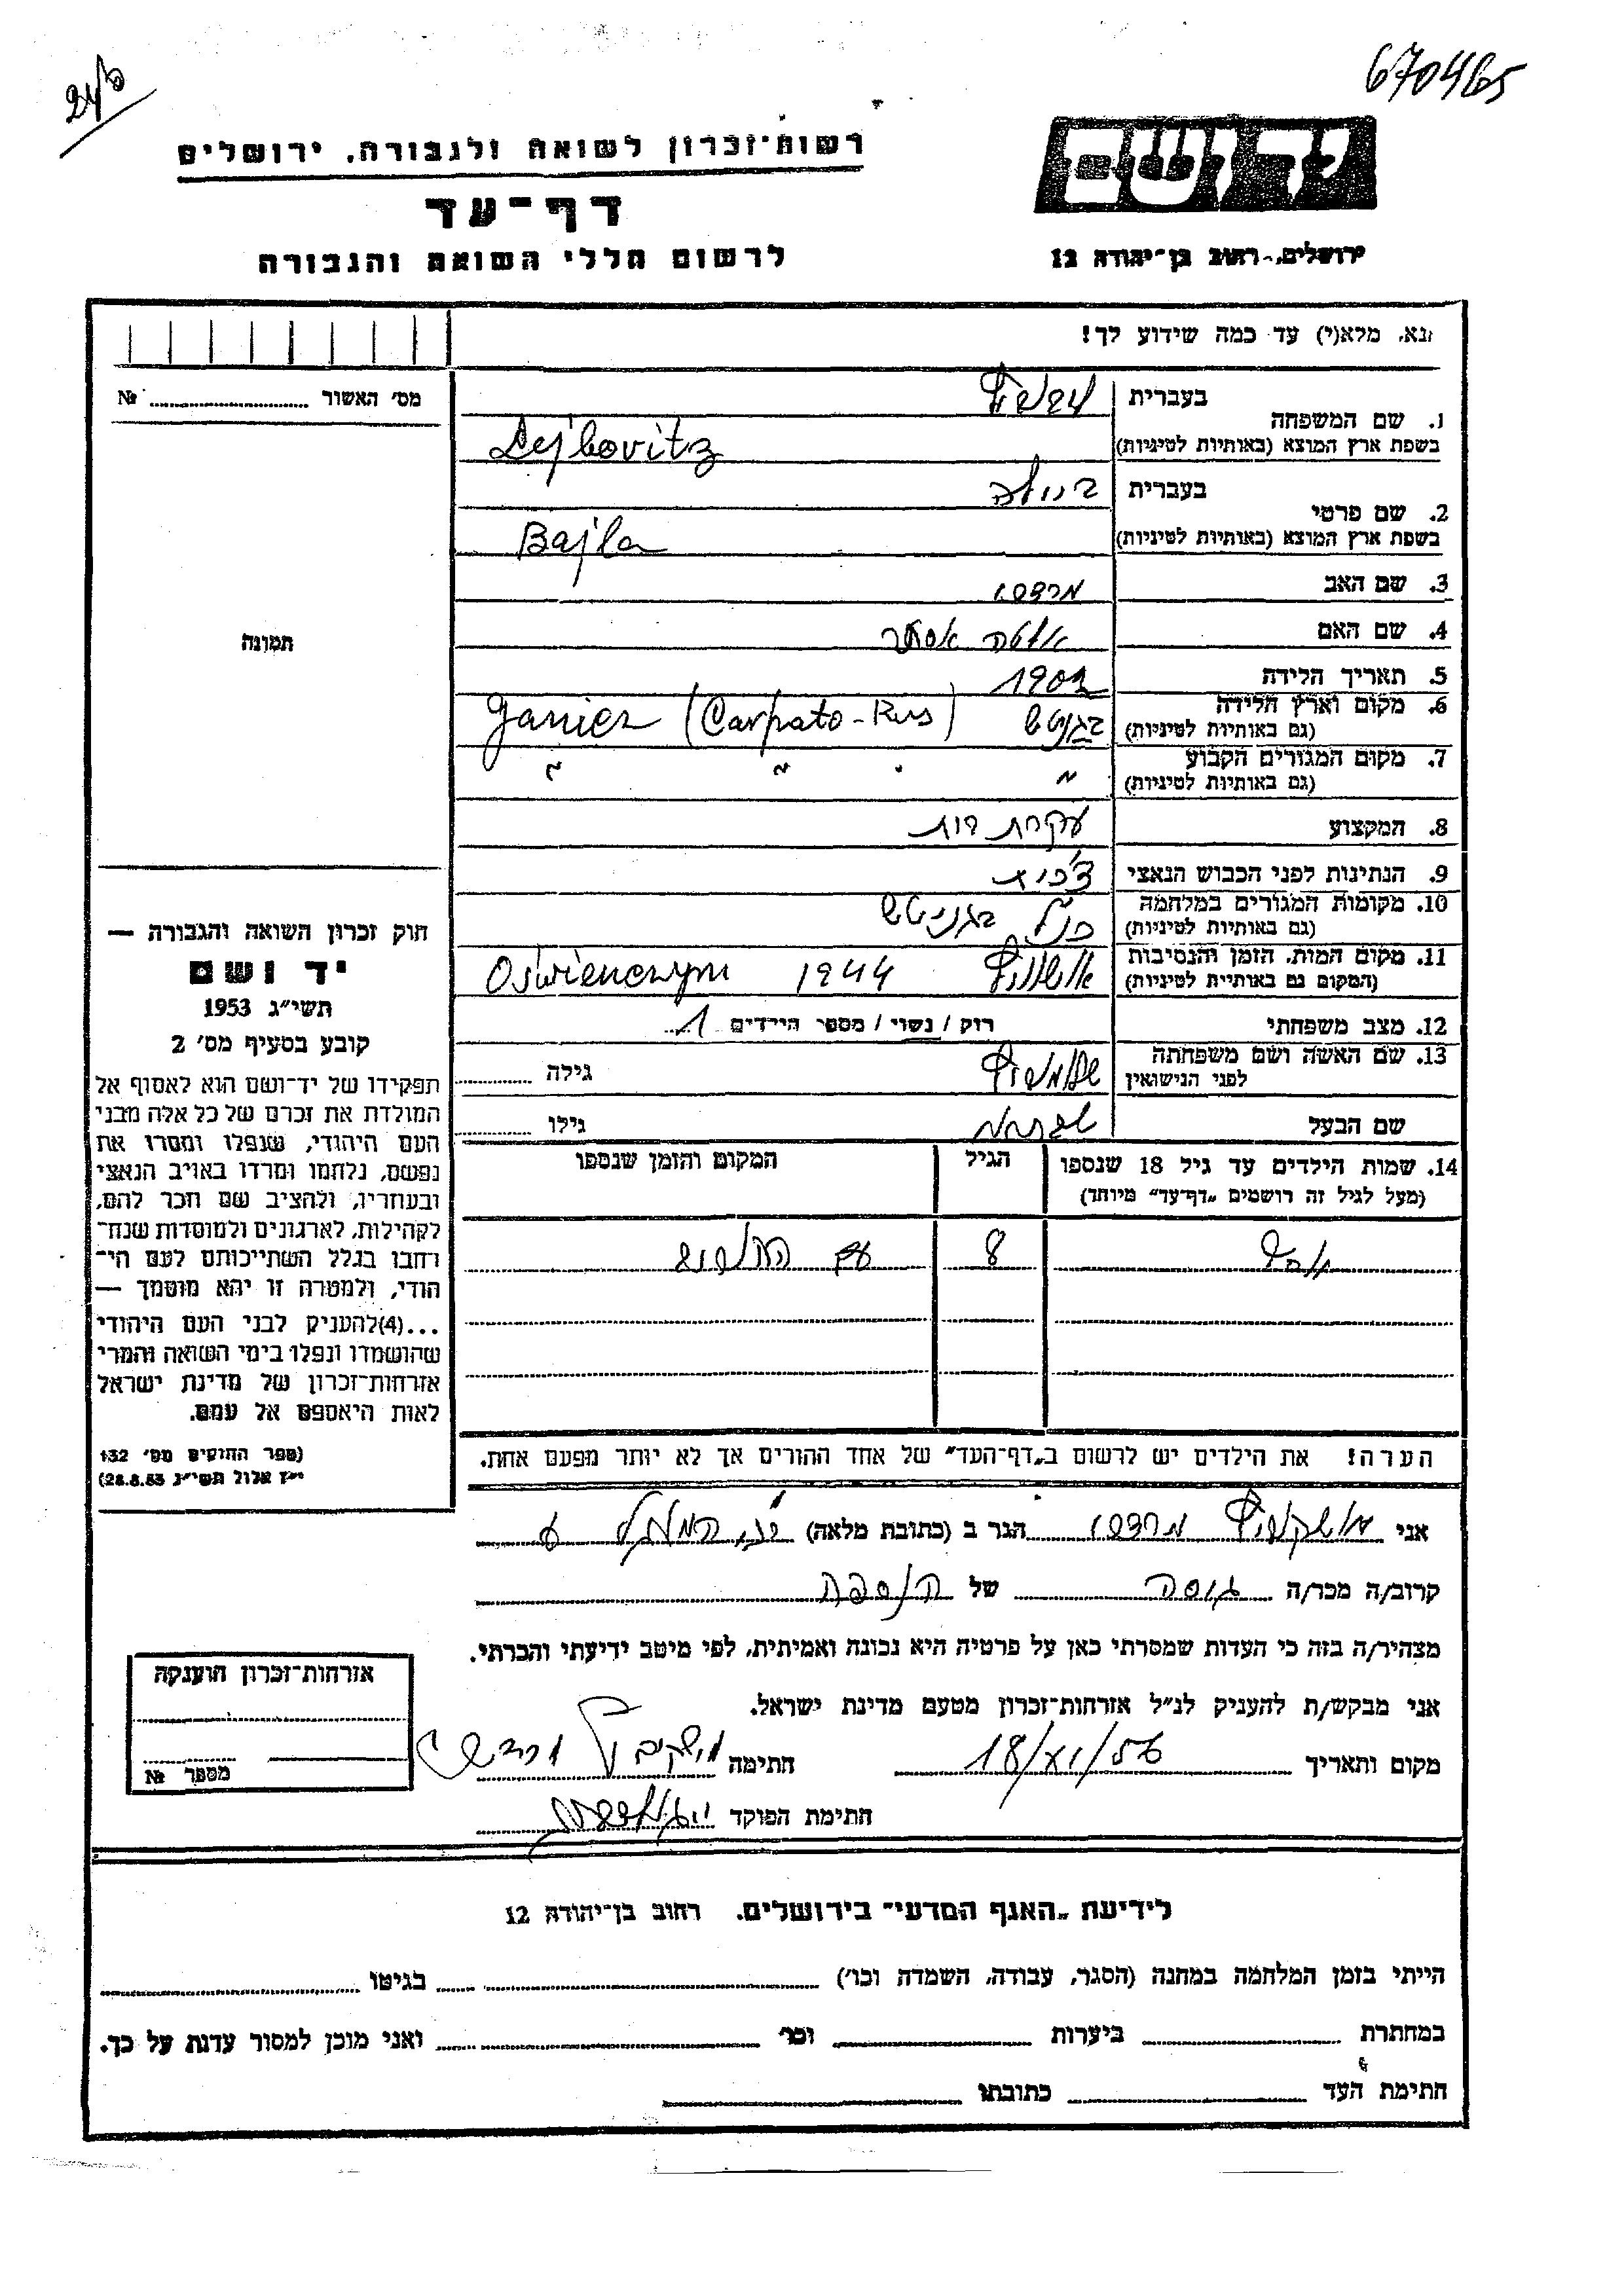 670465
רשות־זכרון לשואה ולגבורה, ירושלים
יד ושם
דף־עד
לרשום חללי השואה והגבורה
ירושלים, רחוב בן־יהודה 12
נא, מלא(י) עד כמה שידוע לך!
מס׳ האשור № 
1. שם המשפחה
בעברית
בשפת ארץ המוצא (באותיות לטיניות) Lejbovitz
2. שם פרטי
בעברית ביילה
בשפת ארץ המוצא (באותיות לטיניות) Bajla
3. שם האב מרדכי
4. שם האם אסתר
5. תאריך הלידה 1902
6. מקום וארץ הלידה
(גם באותיות לטיניות) Ganicz (Carpato-Rus)
7. מקום המגורים הקבוע " " "
(גם באותיות לטיניות)
8. המקצוע עקרת בית
9. הנתינות לפני הכבוש הנאצי צ׳כית
10. מקומות המגורים במלחמה
(גם באותיות לטיניות) כנ״ל
11. מקום המות, הזמן והנסיבות
(המקום גם באותיות לטיניות) אושוויץ 1944 Oświenczym
12. מצב משפחתי רוק / נשוי / מספר הילדים 1
13. שם האשה ושם משפחתה
לפני הנישואין גילה
שם הבעל גילו
14. שמות הילדים עד גיל 18 שנספו
(מעל לגיל זה רושמים „דף־עד״ מיוחד)
הגיל
המקום והזמן שנספו
יוסף 8 עם
הערה! את הילדים יש לרשום ב„דף־העד״ של אחד ההורים אך לא יותר מפעם אחת.
תמונה
חוק זכרון השואה והגבורה —
יד ושם
תשי״ג 1953
קובע בסעיף מס׳ 2
תפקידו של יד־ושם הוא לאסוף אל
המולדת את זכרם של כל אלה מבני
העם היהודי, שנפלו ומסרו את
נפשם, נלחמו ומרדו באויב הנאצי
ובעוזריו, ולהציב שם וזכר להם,
לקהילות, לארגונים ולמוסדות שנח־
רבו בגלל השתייכותם לעם הי־
הודי, ולמטרה זו יהא מוסמך —
...(4)להעניק לבני העם היהודי
שהושמדו ונפלו בימי השואה והמרי
אזרחות־זכרון של מדינת ישראל
לאות היאספם אל עמם.
(ספר החוקים מס׳ 132
י״ז אלול תשי״ג 28.8.53)
אני מושקוביץ מרדכי הגר ב (כתובת מלאה)
קרוב/ה מכר/ה גיסה של הנספה
מצהיר/ה בזה כי העדות שמסרתי כאן על פרטיה היא נכונה ואמיתית, לפי מיטב ידיעתי והכרתי.
אני מבקש/ת להעניק לנ״ל אזרחות־זכרון מטעם מדינת ישראל.
מקום ותאריך 18/XI/56 חתימה
חתימת הפוקד
אזרחות־זכרון הוענקה
מספר №
לידיעת „האגף המדעי״ בירושלים, רחוב בן־יהודה 12
הייתי בזמן המלחמה במחנה (הסגר, עבודה, השמדה וכו׳) בגיטו
במחתרת ביערות וכו׳ ואני מוכן למסור עדות על כך.
חתימת העד כתובתו